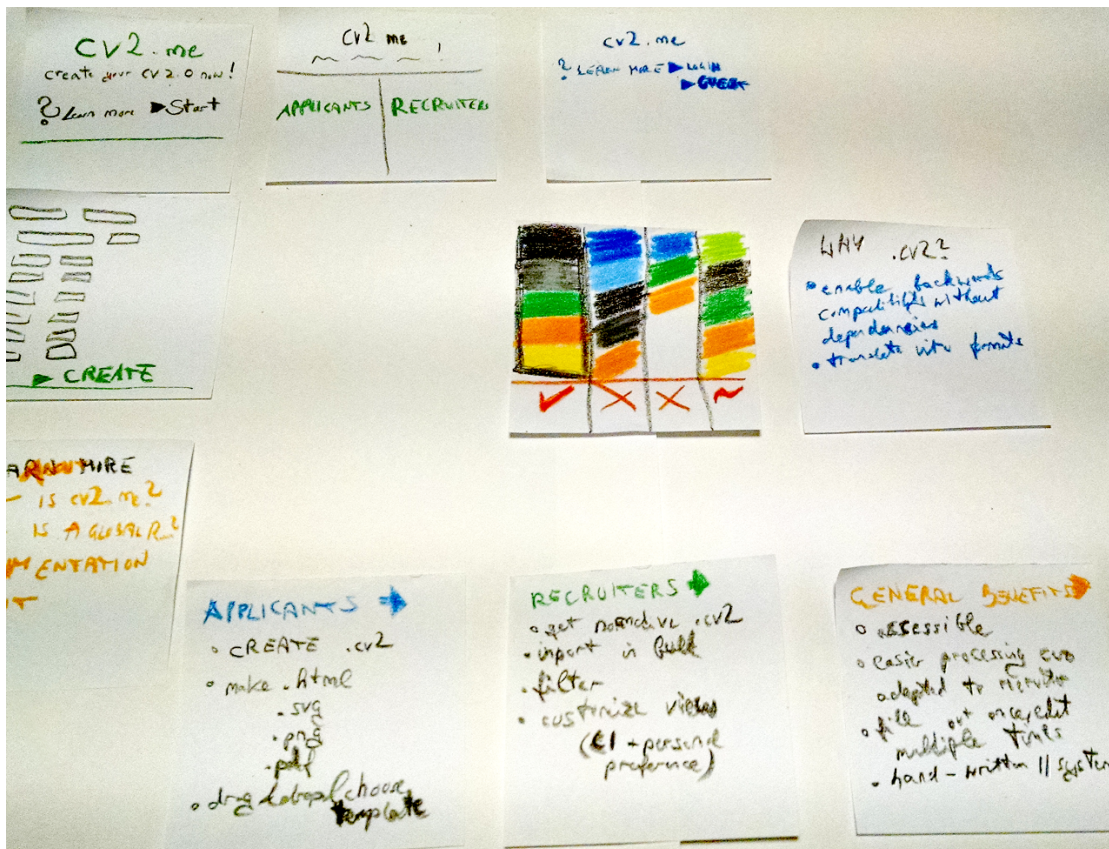 cv2.me
create your cv 2.0 now!
? Learn more ▶ Start
cv2 me
APPLICANTS
RECRUITERS
cv2.me
? LEARN MORE ▶ LOGIN
▶ GUEST
▶ CREATE
WHY .cv2?
• enable backwards
compatibility without
dependencies
• translate into formats
MORE
IS cv2.me?
IS A GLOBAL R...?
ENTATION
APPLICANTS →
• CREATE .cv2
• make .html
.svg
.png
.pdf
• drag & drop / choose
template
RECRUITERS →
• get .cv2
• import in bulk
• filter
• customize views
(CI + personal
preference)
GENERAL BENEFITS →
• accessible
• easier processing
adapted to
• fill out once, edit
multiple times
• hand-written || system